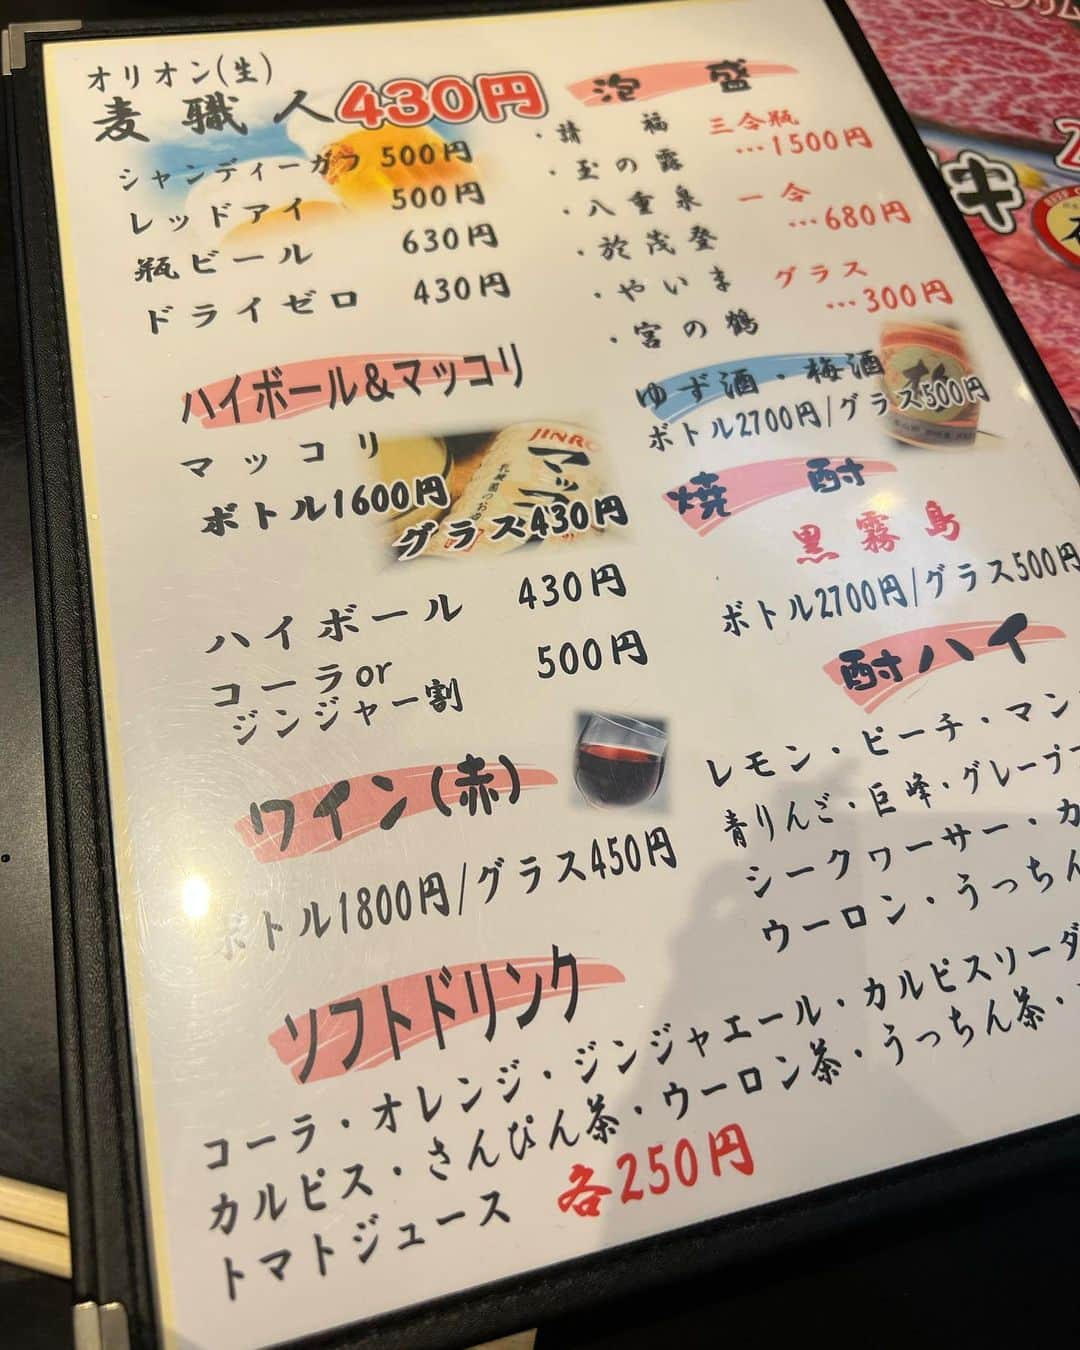 オリオン(生)
麦職人430円
シャンディーガフ 500円
レッドアイ 500円
瓶ビール 630円
ドライゼロ 430円
泡盛
・請福
・玉の露
・八重泉
・於茂登
・やいま
・宮の鶴
三合瓶
…1500円
一合
…680円
グラス
…300円
ハイボール&マッコリ
マッコリ
ボトル1600円
グラス430円
JINRO
マッコ
ハイボール 430円
コーラor
ジンジャー割 500円
ゆず酒・梅酒
ボトル2700円/グラス500円
焼酎
黒霧島
ボトル2700円/グラス500円
酎ハイ
レモン・ピーチ・マン
青りんご・巨峰・グレープフ
シークヮーサー・カ
ウーロン・うっちん
ワイン(赤)
ボトル1800円/グラス450円
ソフトドリンク
コーラ・オレンジ・ジンジャエール・カルピスソーダ
カルピス・さんぴん茶・ウーロン茶・うっちん茶・
トマトジュース 各250円
キ